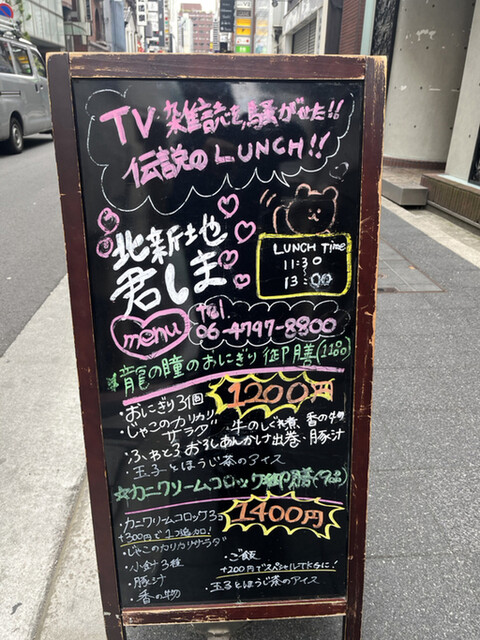 TV 雑誌を騒がせた!!
伝説の LUNCH!!
北新地
君しま
LUNCH Time
11:30
〜
13:00
menu
Tel.
06-4797-8800
龍の瞳のおにぎり御膳
1200円
・おにぎり3個
・じゃこのカリカリサラダ
・牛のしぐれ煮
・香の物
・ふわとろおろしあんかけ出巻
・豚汁
・玉子とほうじ茶のアイス
☆カニクリームコロッケ御膳
1400円
・カニクリームコロッケ3コ
+300円で1つ追加!
・じゃこのカリカリサラダ
・小鉢3種
・豚汁
・香の物
・ご飯
+200円でスペシャルTKGに!
・玉子とほうじ茶のアイス